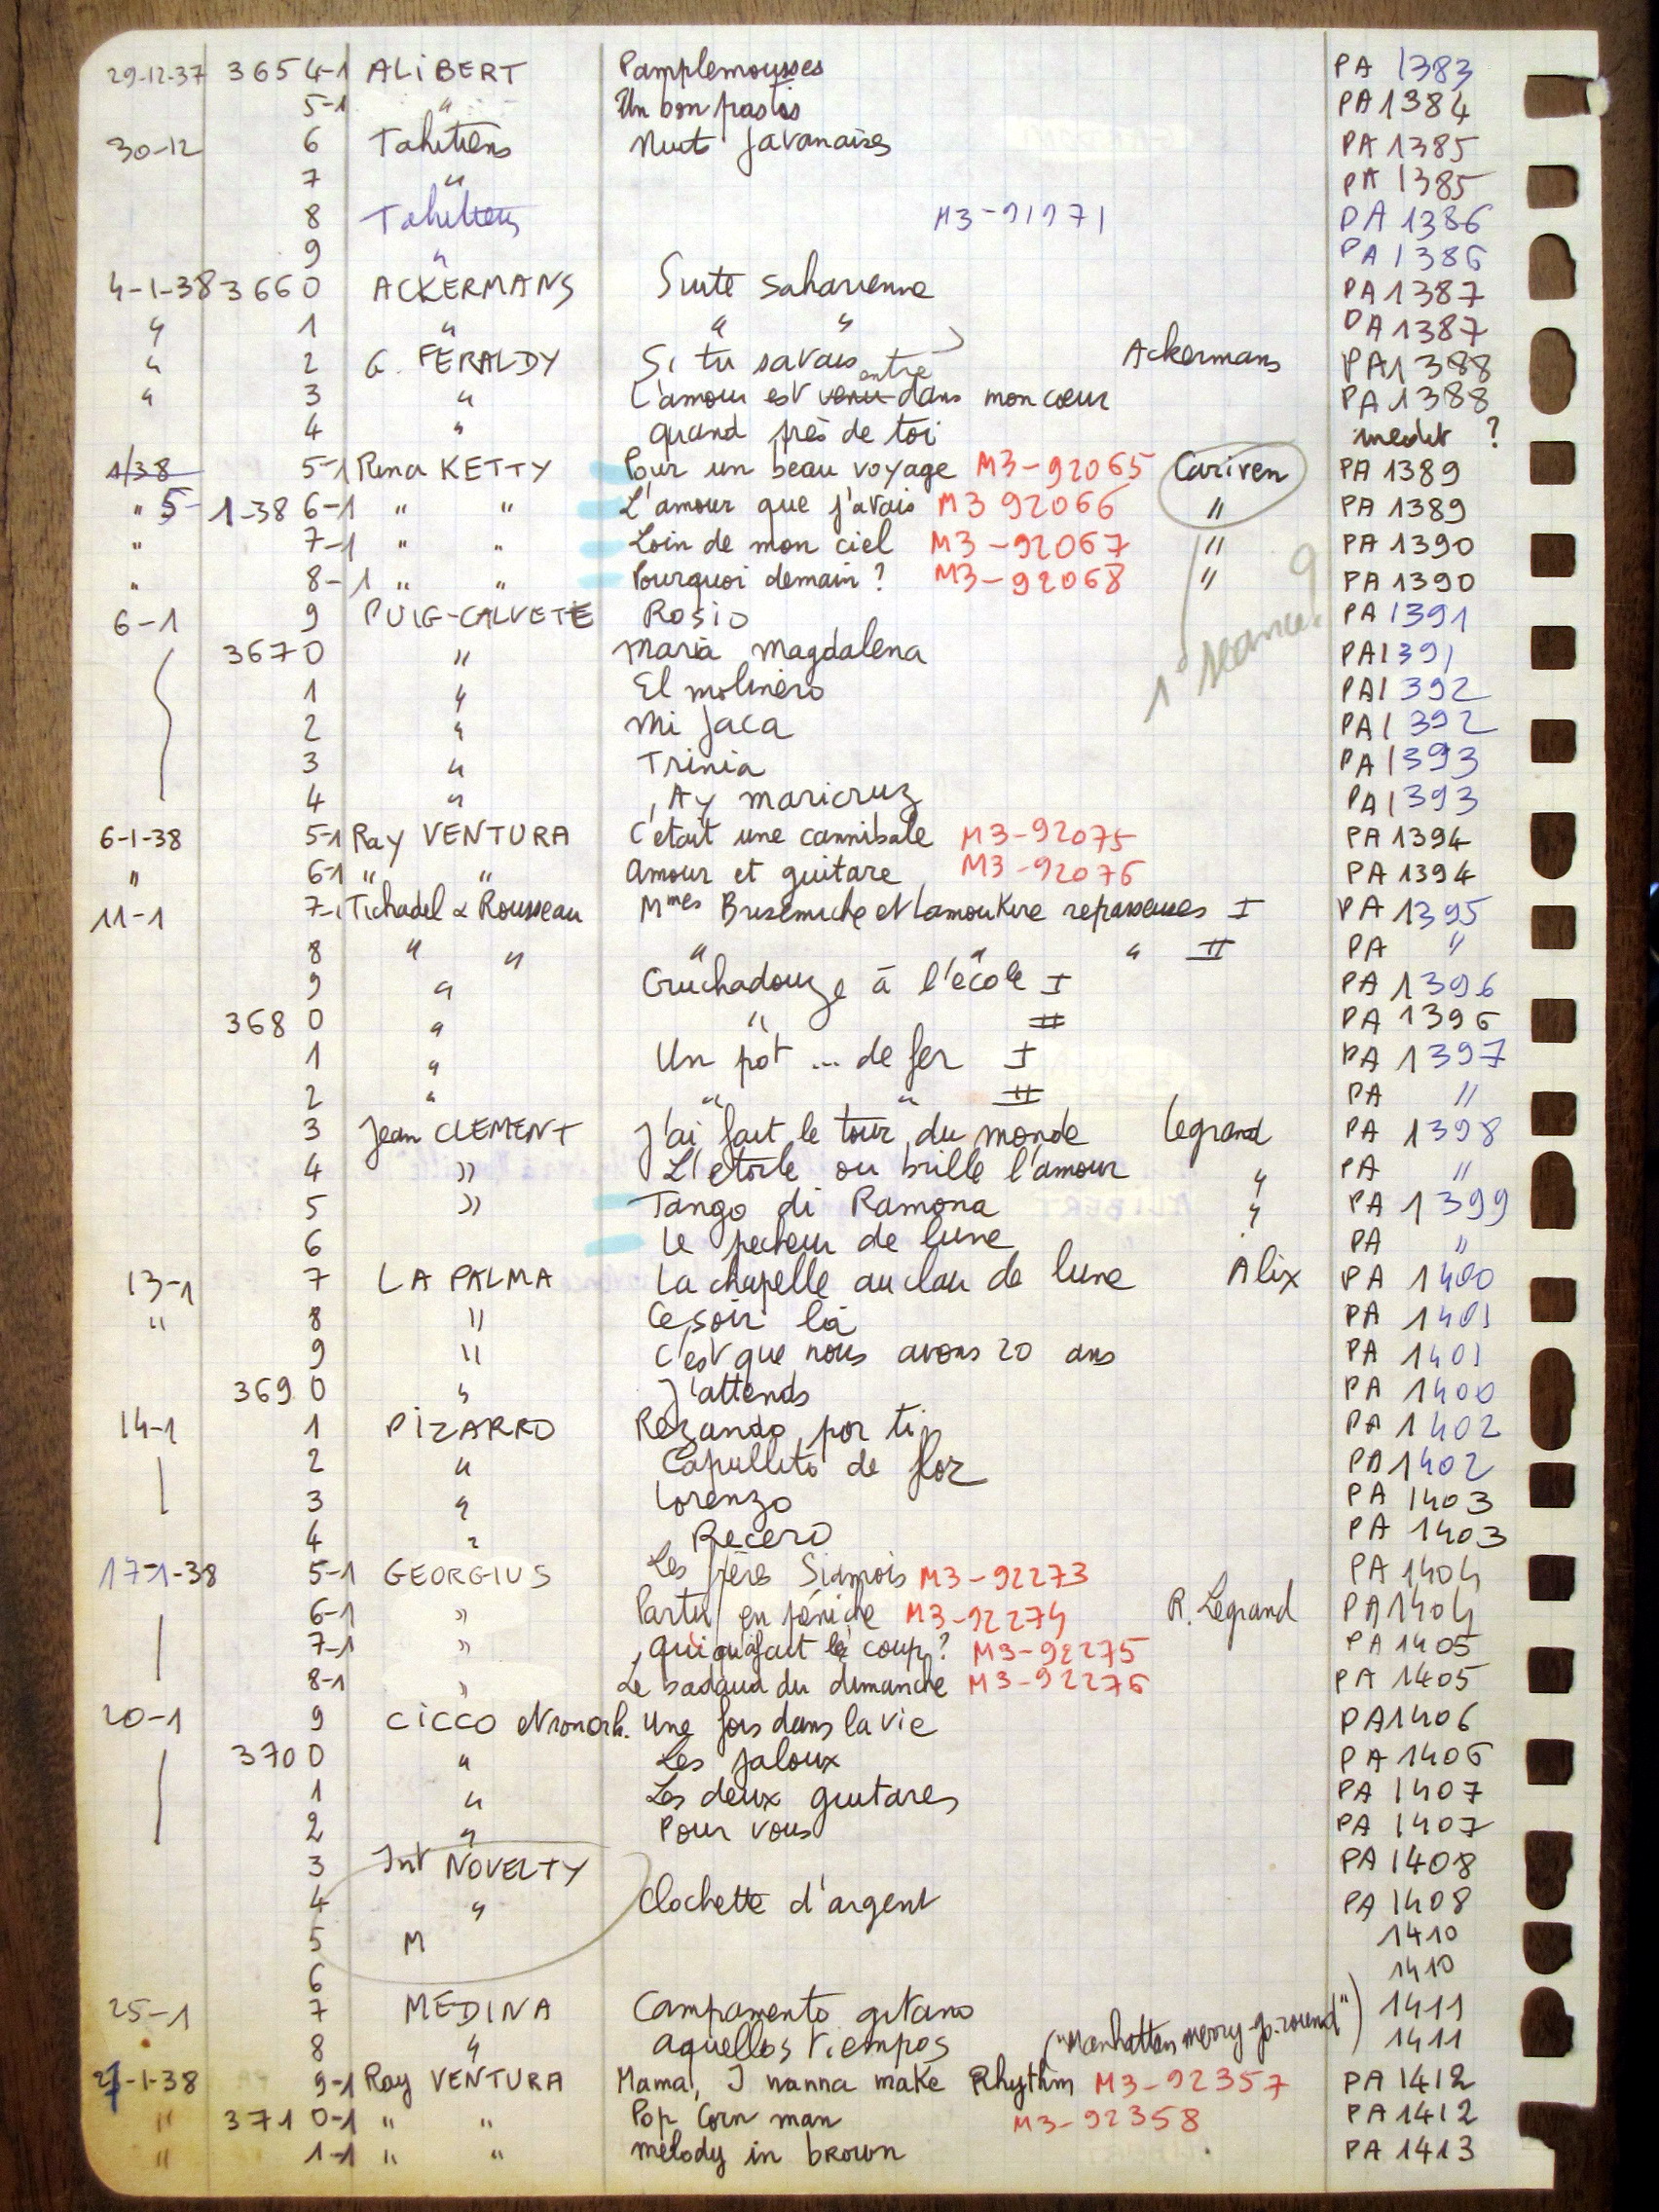 29-12-37 3654-1 ALIBERT Pamplemousses PA 1383
5-1 " Un bon pastis PA 1384
30-12 6 Tahitiens Nuits Javanaises PA 1385
7 " PA 1385
8 Tahitiens M3-91971 PA 1386
9 " PA 1386
4-1-38 3660 ACKERMANS Suite saharienne PA 1387
" 1 " " " PA 1387
" 2 G. FERALDY Si tu savais Ackermans PA 1388
entré
" 3 " L'amour est venu dans mon cœur PA 1388
4 " quand près de toi inedit ?
1/38 5-1 Rina KETTY Pour un beau voyage M3-92065 Cariven PA 1389
" 5-1-38 6-1 " " L'amour que j'avais M3 92066 " PA 1389
" 7-1 " " Loin de mon ciel M3-92067 " PA 1390
" 8-1 " " Pourquoi demain ? M3-92068 " PA 1390
6-1 9 PUIG-CALVETE Rosio PA 1391
3670 " Maria Magdalena PA 1391
1° séance?
1 " El molinero PA 1392
2 " Mi Jaca PA 1392
3 " Trinia PA 1393
4 " Ay maricruz PA 1393
6-1-38 5-1 Ray VENTURA C'était une cannibale M3-92075 PA 1394
" 6-1 " " Amour et guitare M3-92076 PA 1394
11-1 7-1 Tichadel & Rousseau Mmes Brisemiche et Lamoukire repasseuses I PA 1395
8 " " " " " II PA "
9 " Cruchadouze à l'école I PA 1396
3680 " " II PA 1396
1 " Un pot ... de fer I PA 1397
2 " " " II PA "
3 Jean CLEMENT J'ai fait le tour du monde Legrand PA 1398
4 " L'etoile ou brille l'amour " PA "
5 " Tango di Ramona " PA 1399
6 Le pecheur de lune PA "
13-1 7 LA PALMA La chapelle au clair de lune Alix PA 1400
" 8 " Ce soir là PA 1401
9 " C'est que nous avons 20 ans PA 1401
3690 " J'attends PA 1400
14-1 1 PIZARRO Rezando por ti PA 1402
2 " Capullito de flor PA 1402
3 " Lorenzo PA 1403
4 " Recero PA 1403
17-1-38 5-1 GEORGIUS Les frères Siamois M3-92273 PA 1404
6-1 " Partir en péniche M3-92274 R. Legrand PA 1404
7-1 " qui qu'a fait le coup ? M3-92275 PA 1405
8-1 " Le badaud du dimanche M3-92276 PA 1405
20-1 9 CICCO et son orch. Une fois dans la vie PA 1406
3700 " Les Jaloux PA 1406
1 " Les deux guitares PA 1407
2 " Pour vous PA 1407
3 Int NOVELTY PA 1408
4 " Clochette d'argent PA 1408
5 M 1410
6 1410
25-1 7 MEDINA Campamento gitano 1411
8 " aquellos tiempos ("Manhattan merry-go-round") 1411
27-1-38 9-1 Ray VENTURA Mama, I wanna make Rhythm M3-92357 PA 1412
" 3710-1 " " Pop Corn man M3-92358 PA 1412
" 1-1 " " melody in brown PA 1413